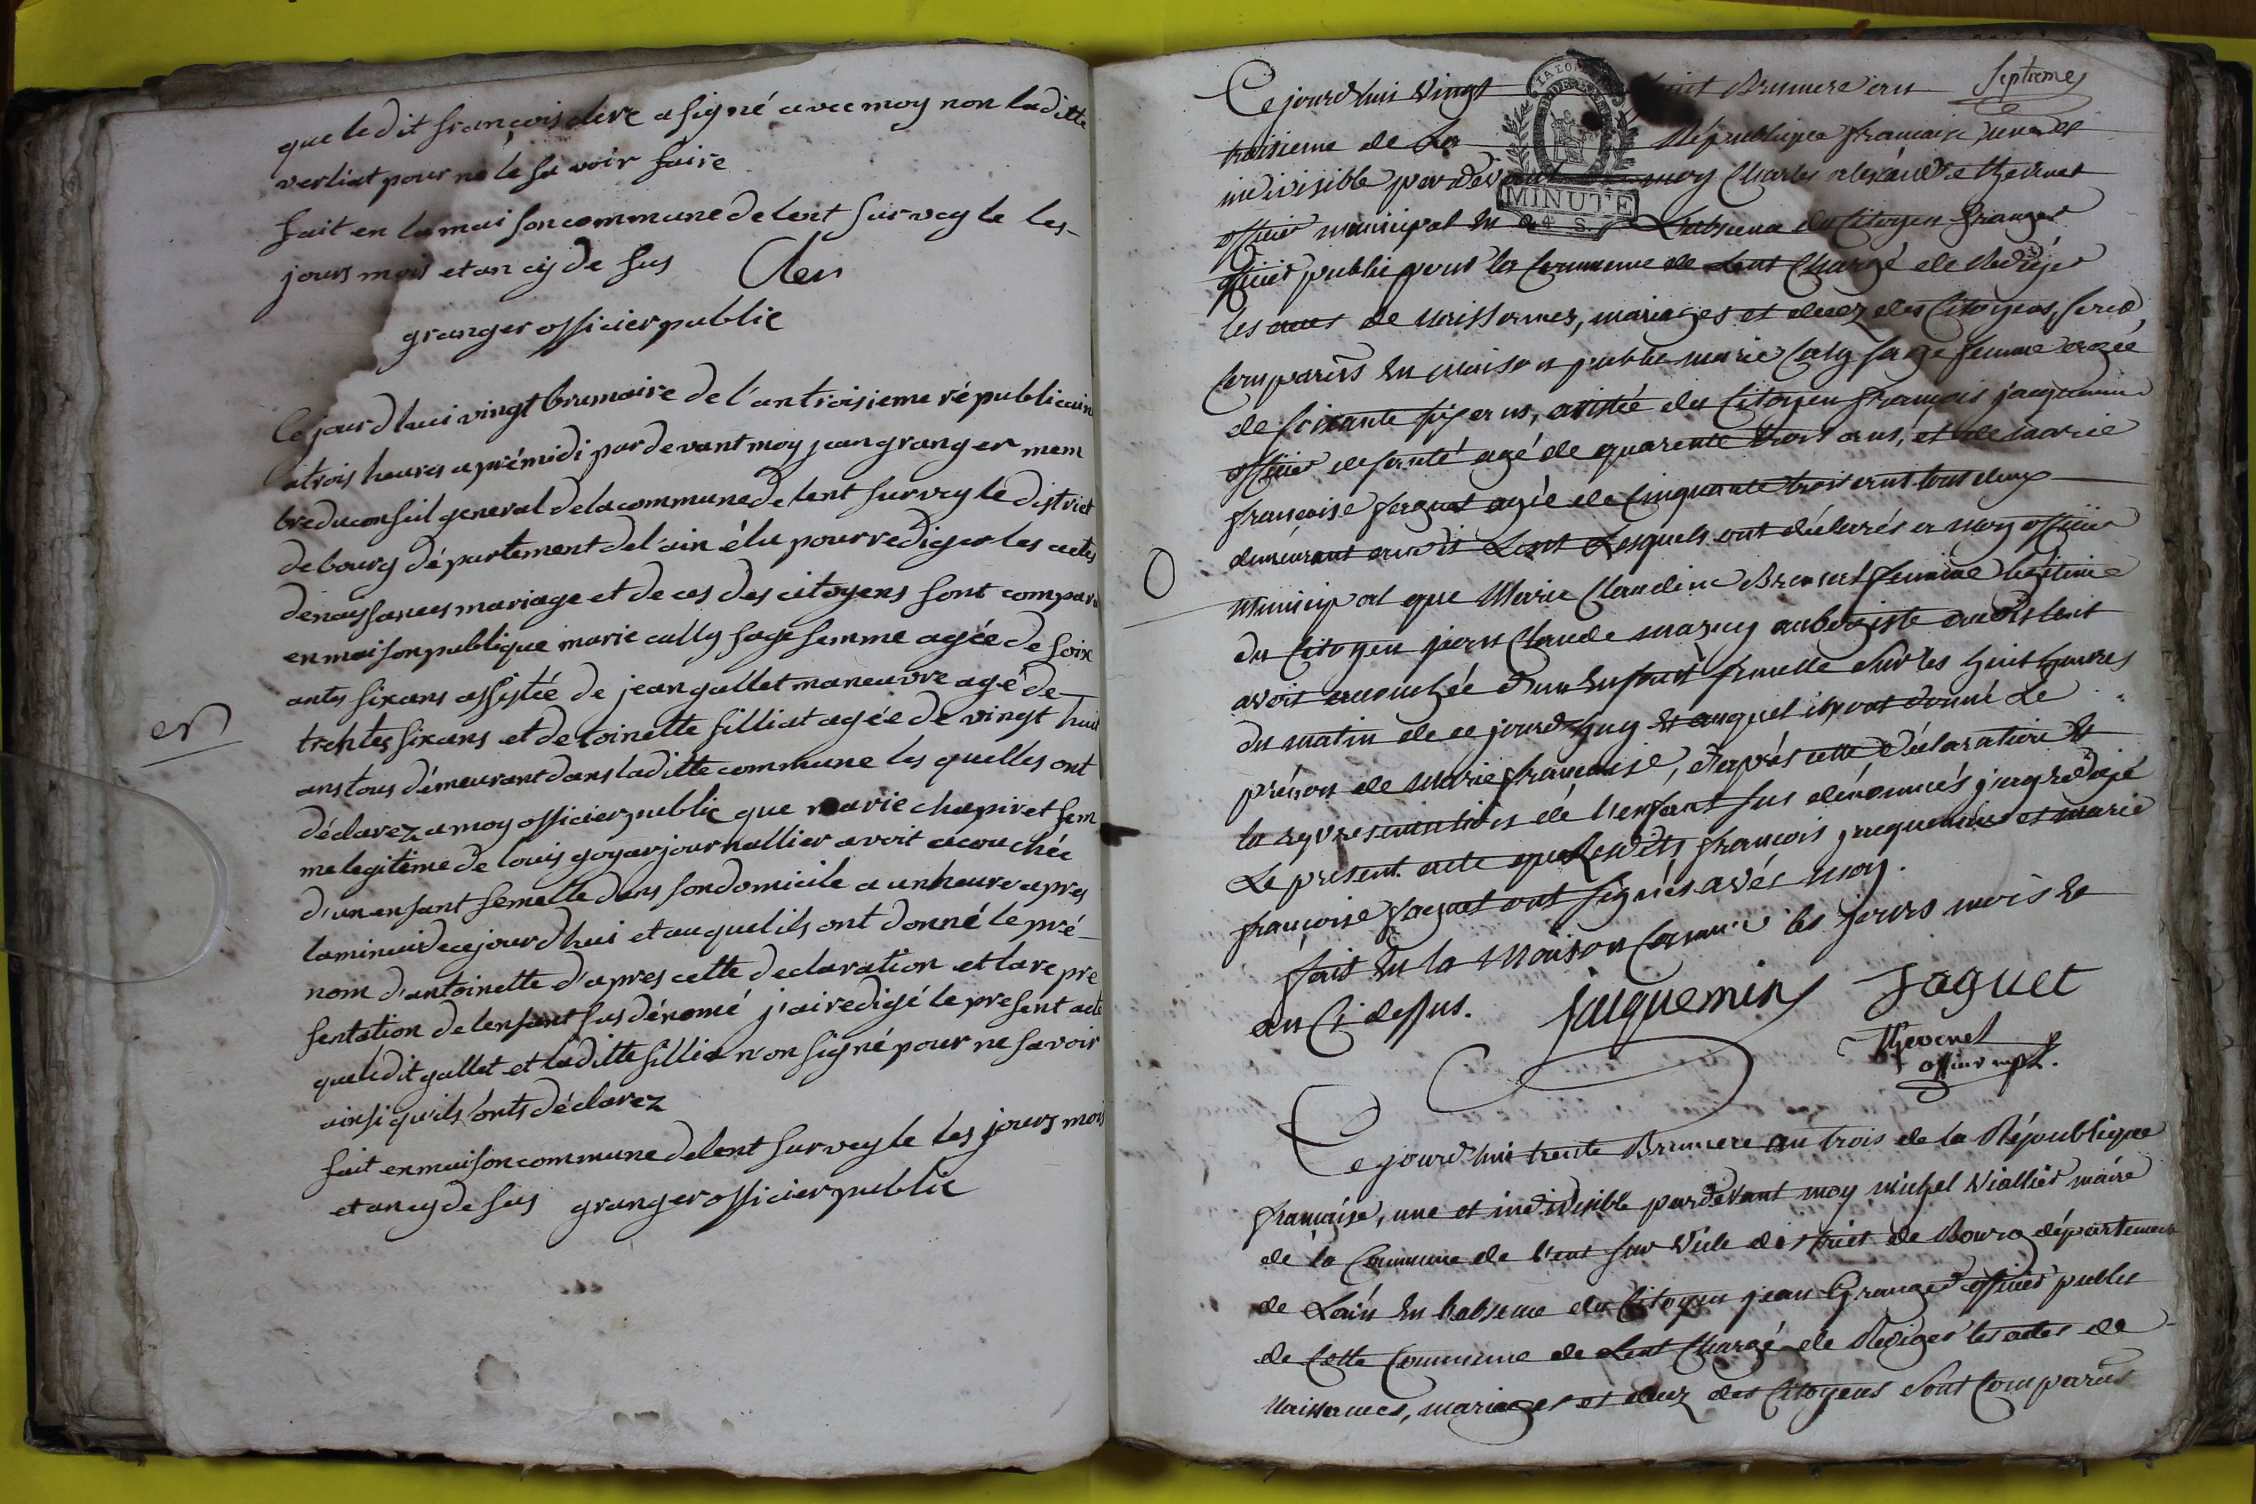 que ledit françois clerc a signé avec moy non laditte
verliat pour ne le sa voir faire
fait en la maison commune de lent sur vey le les
jours mois et an cy de sus Clerc
granger officier public
Ce jourd'huis vingt brumaire de l'an troisieme républicain
a trois heures aprémidi par devant moy jean granger mem
bre du conseil general de la commune de lent sur vey le district
de bourg département de l'ain élu pour rediger les actes
de naissances mariage et deces des citoyens sont comparu
en maison publique marie cally sage femme agée de soix
antes six ans assistée de jean gallet maneuvre agé de
trehtes six ans et de toinette silliat agée de vingt huit
ans tous démeurant dans laditte commune les quelles ont
déclarez a moy officier public que marie chapiret fem
me legitême de louis goyar journallier avoit acouchée
d'un enfant femelle dans son domicile a un heure apres
la minuit de ce jourd'hui et au quel ils ont donné le pré
nom d'antoinette d'apres cette declaration et la re pre
sentation de lenfant sus dénomé j'ai redigé le present acte
que ledit gallet et laditte sillia n'on signé pour ne savoir
ainsi qu'ils l'onts déclarez
fait en maison commune de lent sur vey le les jours mois
et an cy de sus granger officier public
en
Septieme
Ce jourd'hui vingt huit Brumere an
troisieme de La République francaise une et
indivisible par devant moy Charles alexandre thevenet
MINUTE
4 S.
officier municipal en L'absence du Citoyen Granger
officier public pour la Commune de Lent Chargé de Rediger
les actes de naissances, mariages et decez des Citoyens, sont
Comparûs en maison publie marie Caly sage femme agée
de soixante six ans, assistée du Citoyen françois jacquemin
officier de santé agé de quarente trois ans, et de marie
françoise faguet agée de Cinquante trois ans tous deux
demeurant audit Lent Lesquels ont déclarés a moy officier
municipal que Marie Claudine Brevet femme légitime
du Citoyen pierre Claude mazuy aubergiste audit lent
avoit acouchée d'un enfant femelle sur les huit heures
du matin de ce jourd'huy et auquel ils ont donné Le
prénom de Marie françoise, d'après cette déclaration et
la représentation de l'enfant sus dénommés j'ay redigé
Le présent acte que Lesdits françois jacquemin et marie
françoise faguet ont signés avéc moy.
fait en la Maison Commune les jours mois et
an Ci dessus. Jacquemin faguet
Thevenet
officier mpl.
Ce jourd'hui trente Brumere an trois de la République
française, une et indivisible pardevant moy michel Viallier maire
de la Commune de Lent sur Veile district de Bourg département
de Lain en L'absence du Citoyen jean Granger officier public
de Cette Commune de Lent Chargé de Rediger les actes de
naissances, mariages et decez des Citoyens sont Comparûs